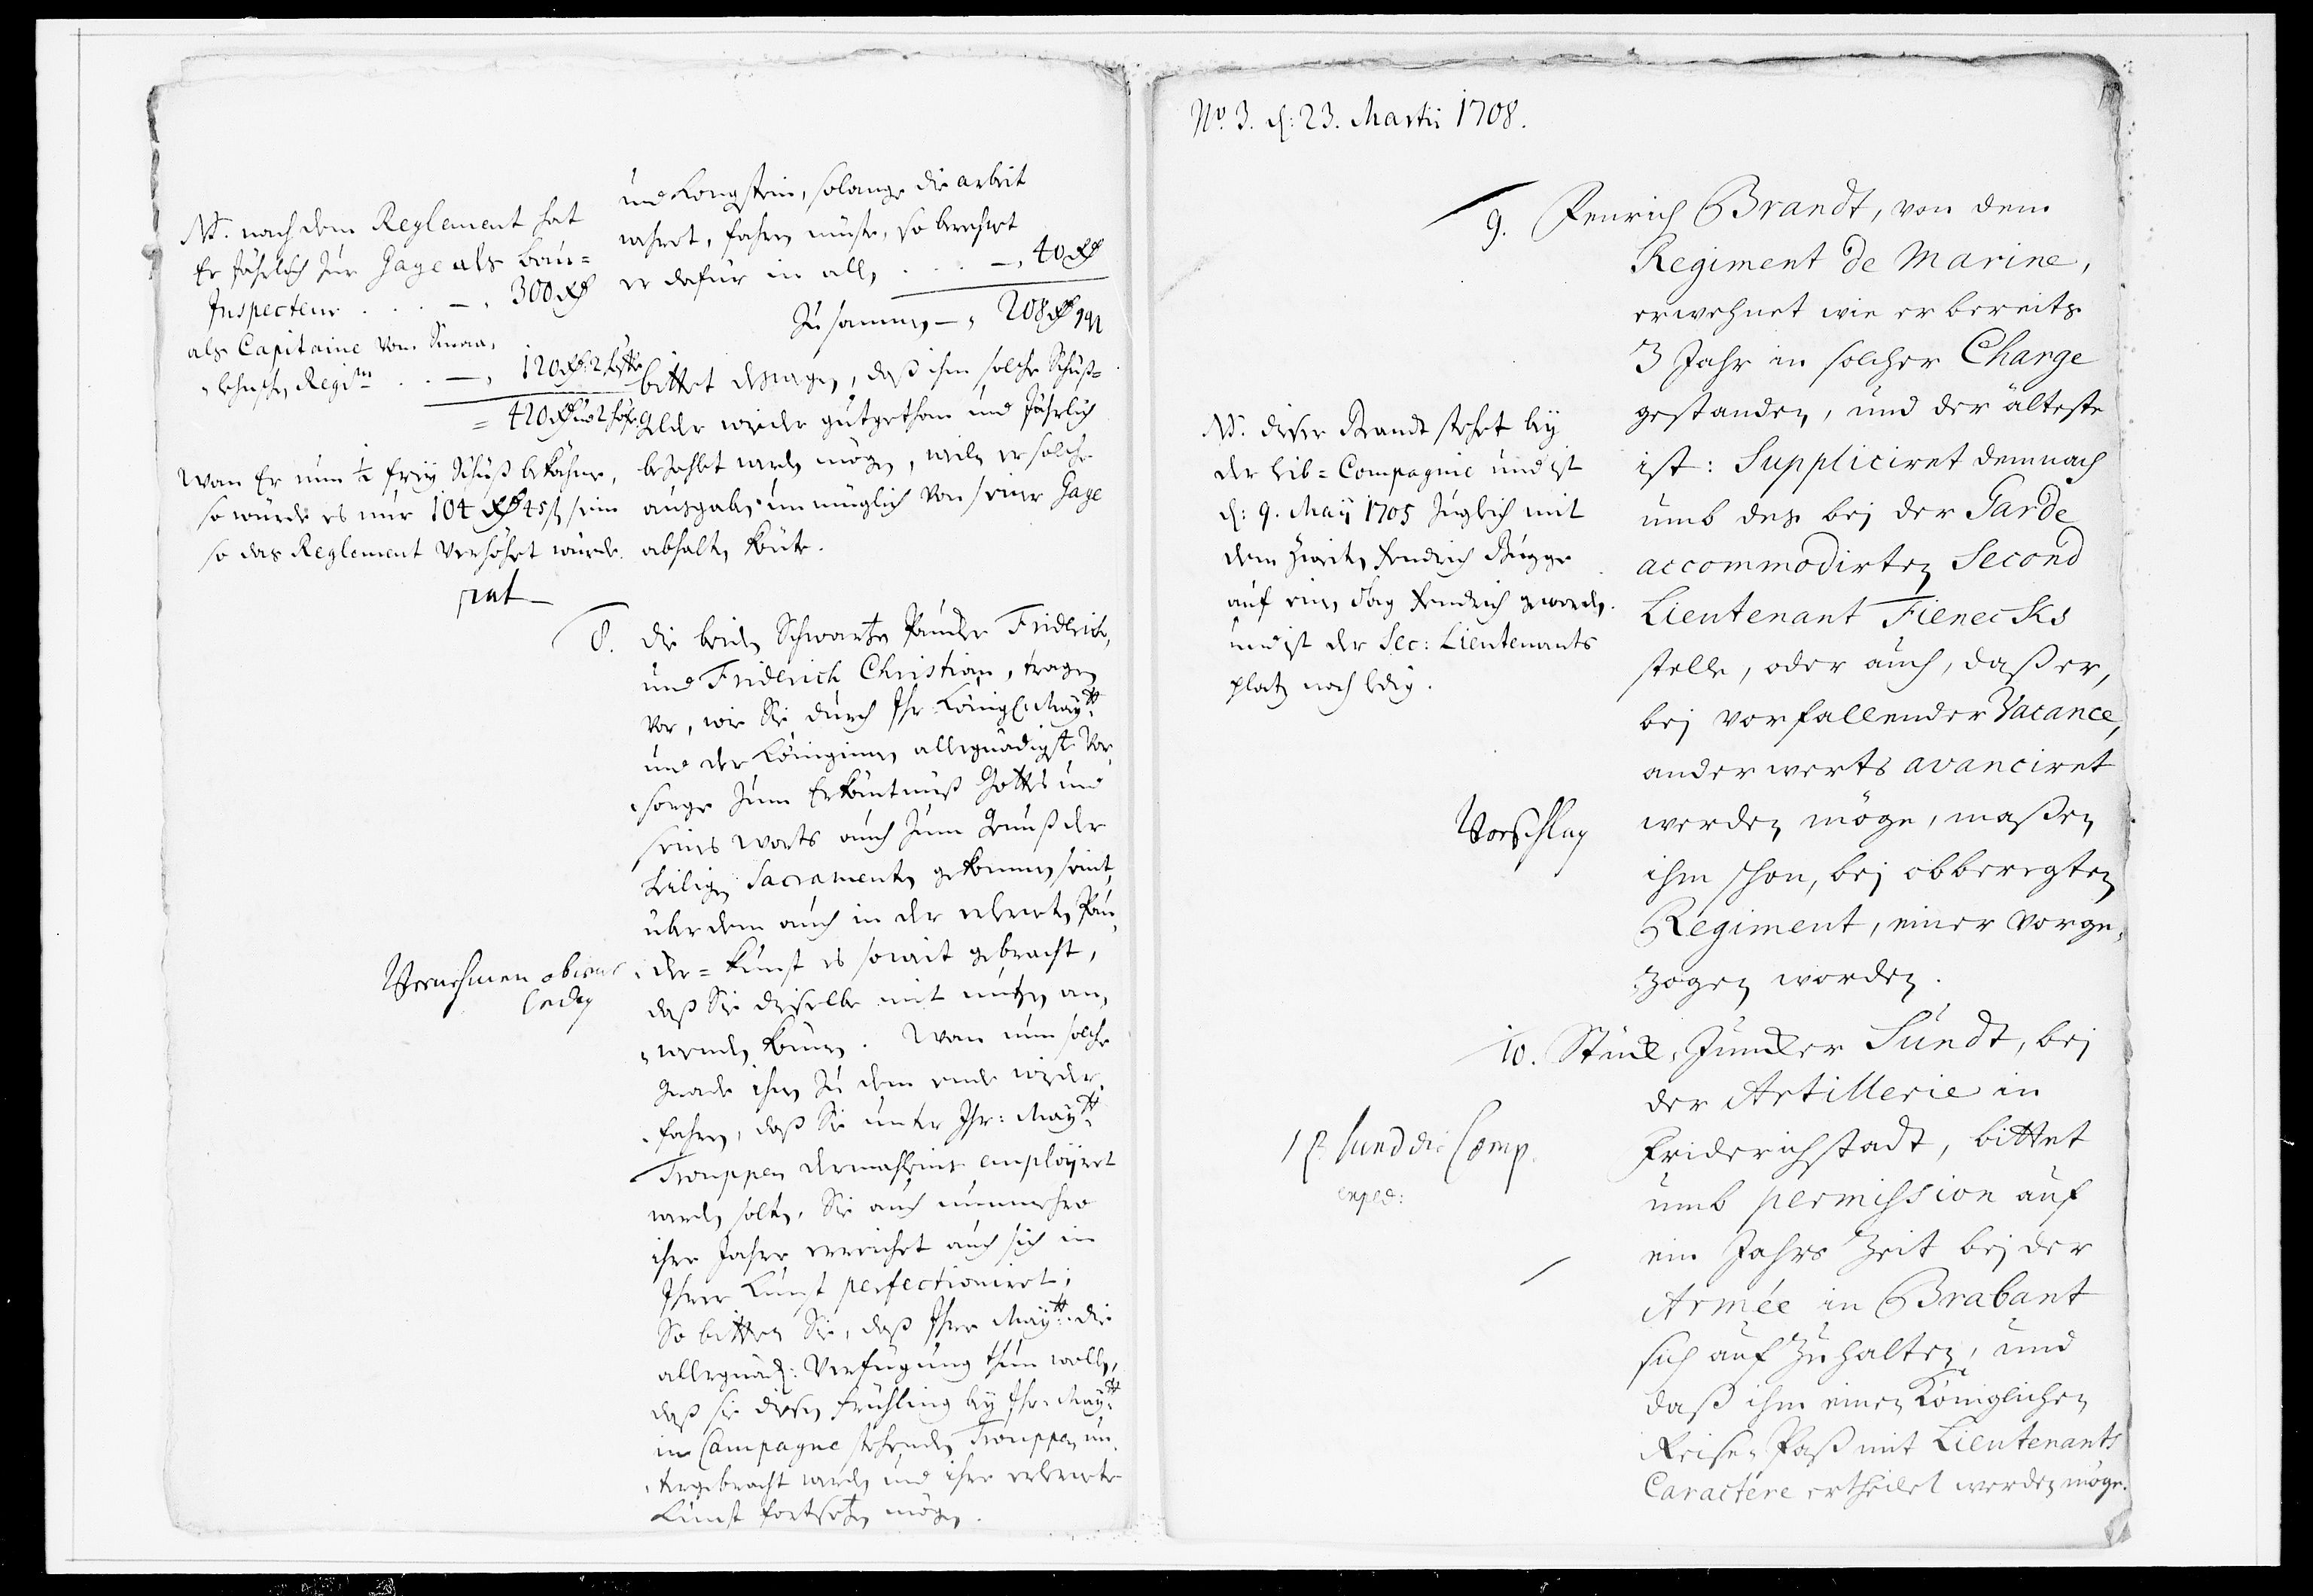 NB. nach dem Reglement hat
Er jährlich zur Gage als Bau=
Inspecteur . . . —, 300 Rdr
als Capitaine vom
Regim . . —, 120 Rdr 2
= 420 Rdr
Wan Er nun ½ frey Schuß bekähme,
so würde es nur 104 Rdr 45ß sein
so das Reglement verhöhet würde.
und Kongstein, solange die arbeit
wehret, fahren müste, so berechnet
er dafür in allen . . . —, 40 Rdr
Zusammen —, 208 Rdr
bittet deswegen, daß ihm solche Schuß=
gelder wieder gutgethan und Jährlich
bezahlet werden mögen, weilen er solche
ausgaben unmüglich von seiner Gage
abhalten könte.
8. Die beiden Schwartze Paucker Friderich,
und Friderich Christian, tragen
vor, wie Sie durch Ihr Königl. Maytt:
und der Königinnen allergnädigste Vor„
„sorge zum Erkäntnuß Gottes und
seines Worts auch zum Genuß der
heiligen Sacramenten gekommen seint,
über dem auch in der erlernten Pau„
„cker=kunst es soweit gebracht,
daß Sie dieselbe mit nutzen an„
„wenden können. Wan nun solche
Gnade ihnen zu dem ende wieder„
„fahren, daß Sie unter Ihr: Maytt:
Trouppen dermahleins employiret
werden solten, Sie auch nunmehro
ihre Jahre erreichet auch sich in
Ihrer Kunst perfectioniret;
So bitten Sie, daß Ihre Maytt: die
allergnäd: Verfügung thun wollen,
daß sie diesen Frühling bey Ihr. Maytt:
in Campagne stehenden Trouppen un„
„tergebracht werden und ihre erlernte
Kunst fortsetzen mögen.
Vernehmen
No. 3. d: 23. Martii 1708.
9. Fenrich Brandt, von dem
Regiment de Marine,
erwehnet wie er bereits
3 Jahr in solcher Charge
gestanden, und der älteste
ist: Suppliciret demnach
umb des bei der Garde
accommodirten Second
Lieutenant Fienecks
stelle, oder auch, daß er,
bei vorfallender Vacance,
anderwerts avanciret
werden möge, maßen
ihm schon, bei obberegten
Regiment, einer vorge„
„zogen worden.
NB. dieser Brandt stehet bey
der Leib=Compagnie und ist
d: 9. May 1705 zugleich mit
dem zweiten Fendrich Bugge
auf einen Tag Fendrich geworden.
und ist der Sec: Lieutenants
platz noch ledig.
Vorschlag
10. Stück„Juncker Sundt, bei
der Artillerie in
Friderichstadt, bittet
umb permission auf
ein Jahrs Zeit bei der
Armée in Brabant
sich auf zu halten, und
daß ihm einen Königlichen
Reise„Paß mit Lieutenants
Caractére ertheilet werden möge.
exped: